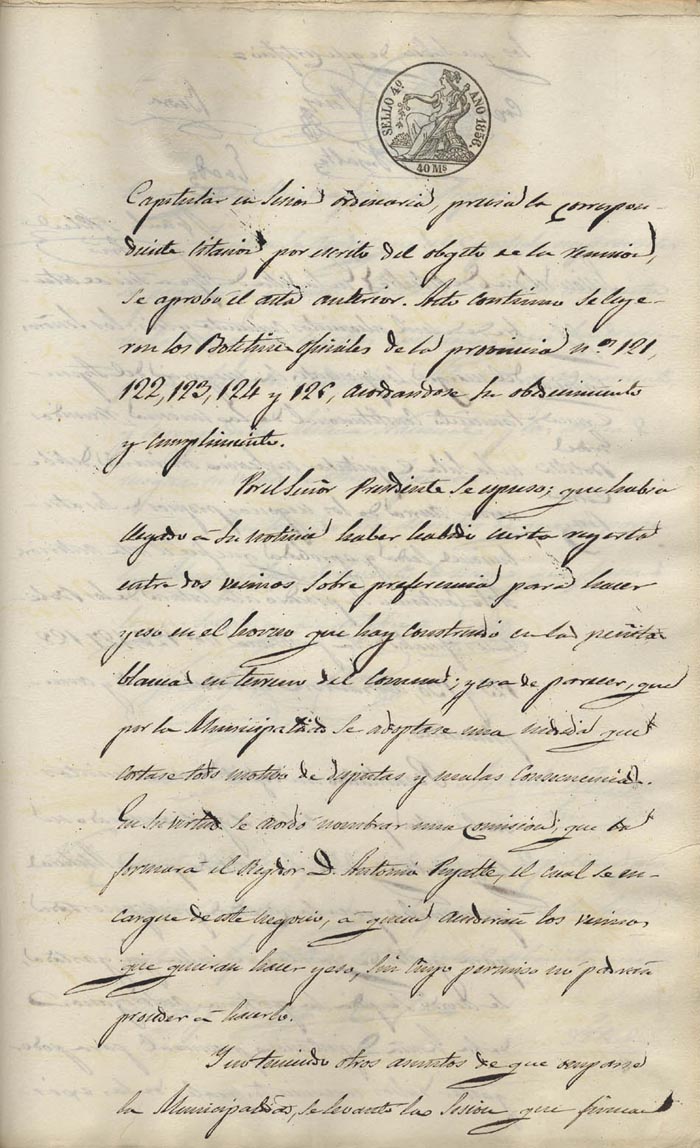 SELLO 4º AÑO 1856.
40 Ms
Capitular en sesion ordinaria, previa la correspon-
diente citacion por escrito del obgeto de la reunion,
se aprobó el acta anterior. Acto continuo se leye-
ron los Boletines oficiales de la provincia nos. 121,
122, 123, 124 y 126, acordandose su obedecimiento
y cumplimiento.
Por el Señor Presidente se espuso; que habia
llegado á su noticia haber habido cierta reyerta
entre dos vecinos sobre preferencia para hacer
yeso en el horno que hay construido en la peñita
blanca en terreno del Comun; y era de parecer, que
por la Municipalidad se adoptase una medida que
cortase todo motivo de disputas y malas consecuencias.
En su virtud se acordó nombrar una comision, que la
formará el Regidor D. Antonio Pujalte, el cual se en-
cargue de este negocio, á quien acudirán los vecinos
que quieran hacer yeso, sin cuyo permiso no podrán
proceder á hacerlo.
Y no teniendo otros asuntos de que ocuparse
la Municipalidad, se levantó la sesion que firman